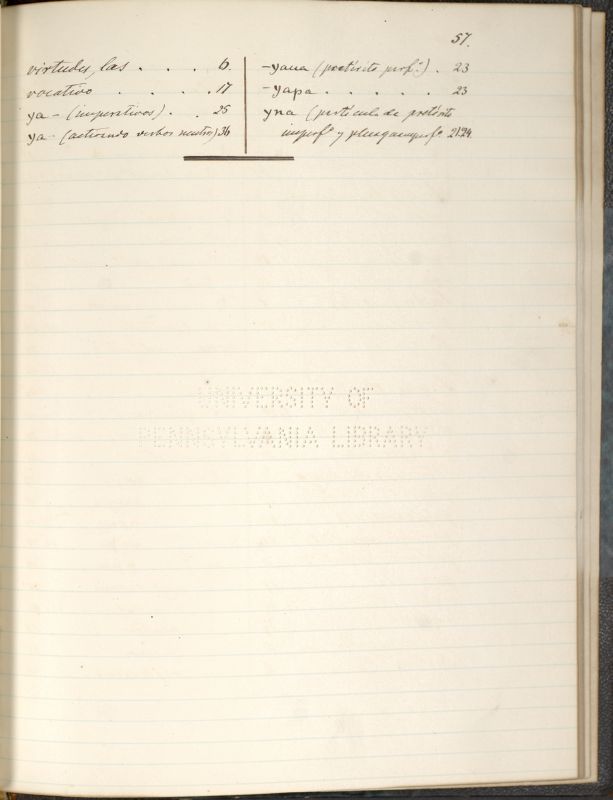 57.
virtudes, las . . . . 6.
vocativo . . . . 17
ya - (imperativos) . . 25
ya - (activando verbos neutros) 36
-yaua (pretérito perfo.) . 23
-yapa . . . . . 23
yna (partícula de pretérito
imperfo. y plusquamperfo. 21.24.
UNIVERSITY OF
PENNSYLVANIA LIBRARY